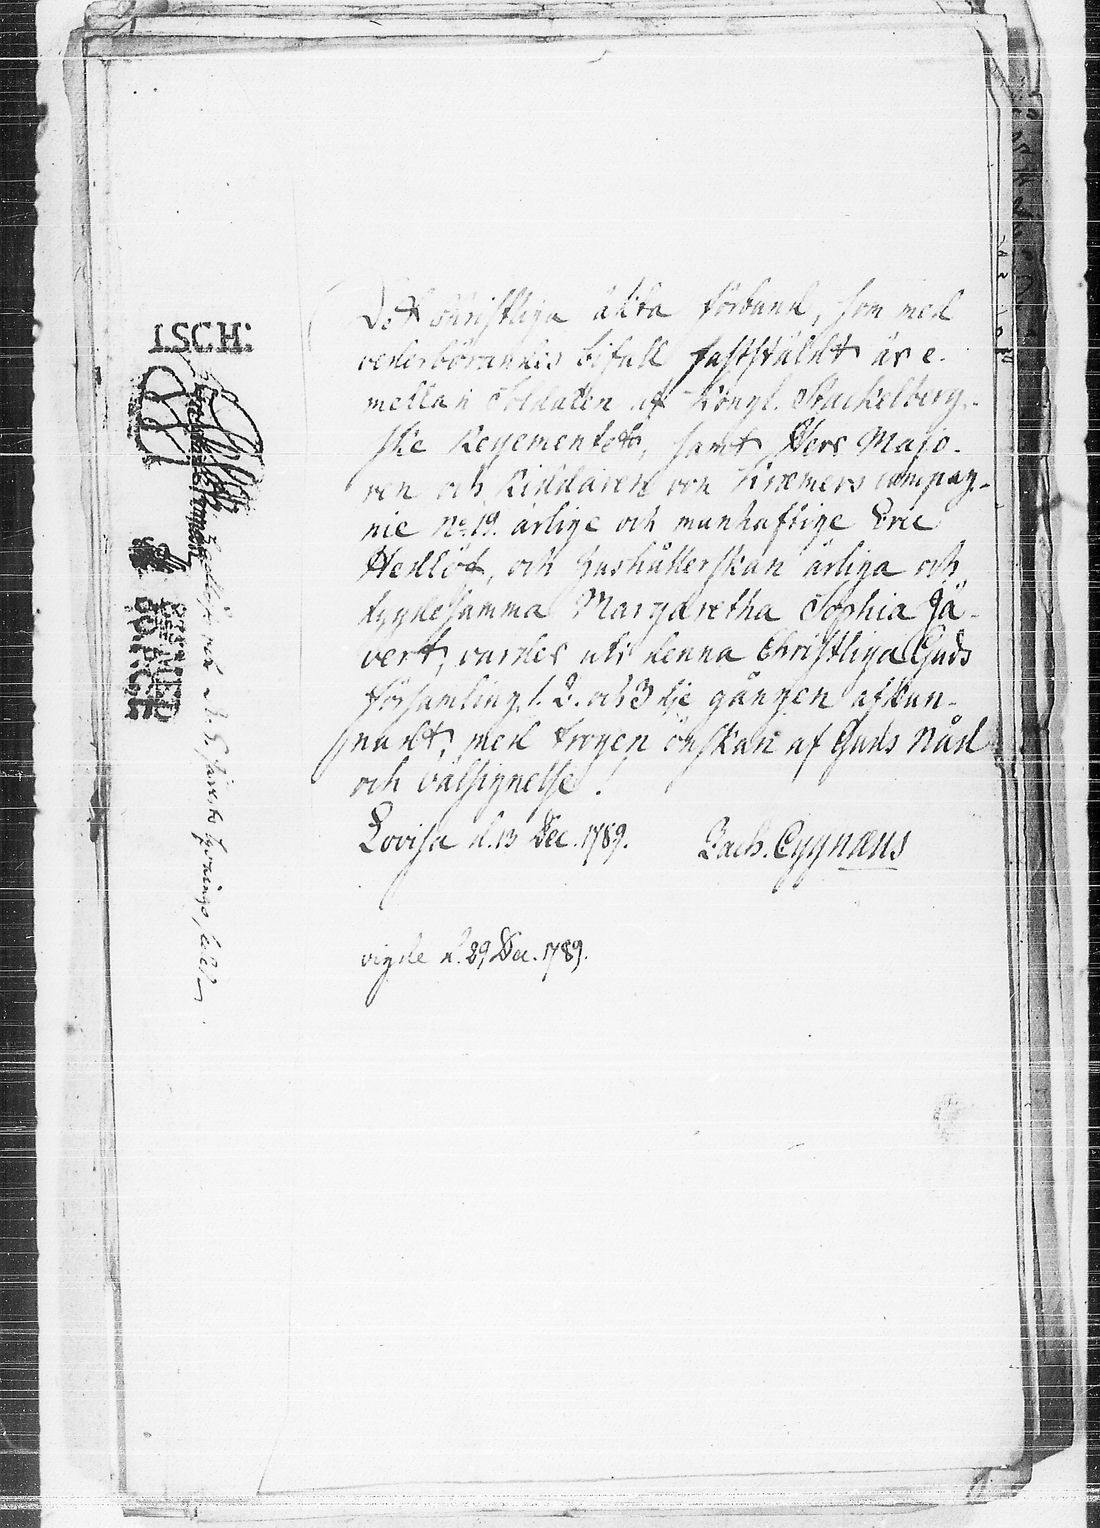 Det Christliga äkta förbund, som med
vederbörandes bifall fastställdt är e-
mellan Soldaten af Kongl. Stackelberg-
ske Regementet, samt Herr Majo-
ren och Riddaren von Kræmers compag-
nie No. 19. ärlige och manhaftige Eric
Hedlöf, och hushållerskan ärliga och
dygdesamma Margaretha Sophia Jä-
vert, varder uti denna Christliga Guds
församling 1. 2. och 3dje gången afkun-
nadt, med trogen önskan af Guds Nåd
och välsignelse!
Lovisa d. 13 Dec. 1789. Zach. Cygnæus
vigde d. 29 Dec. 1789.